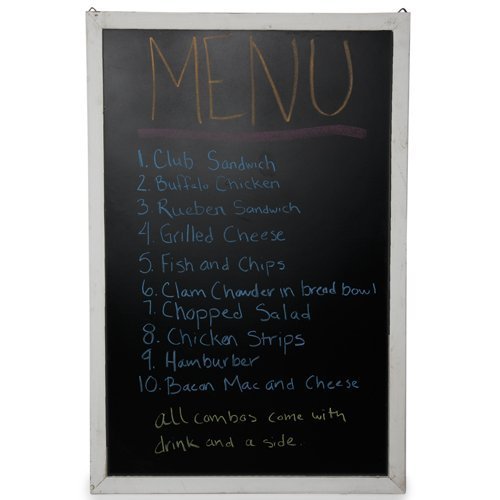 MENU
1. Club Sandwich
2. Buffalo Chicken
3 Rueben Sandwich
4. Grilled Cheese
5. Fish and Chips
6. Clam Chowder in bread bowl
7. Chopped Salad
8. Chicken Strips
9. Hamburber
10. Bacon Mac and Cheese
all combos come with
drink and a side..